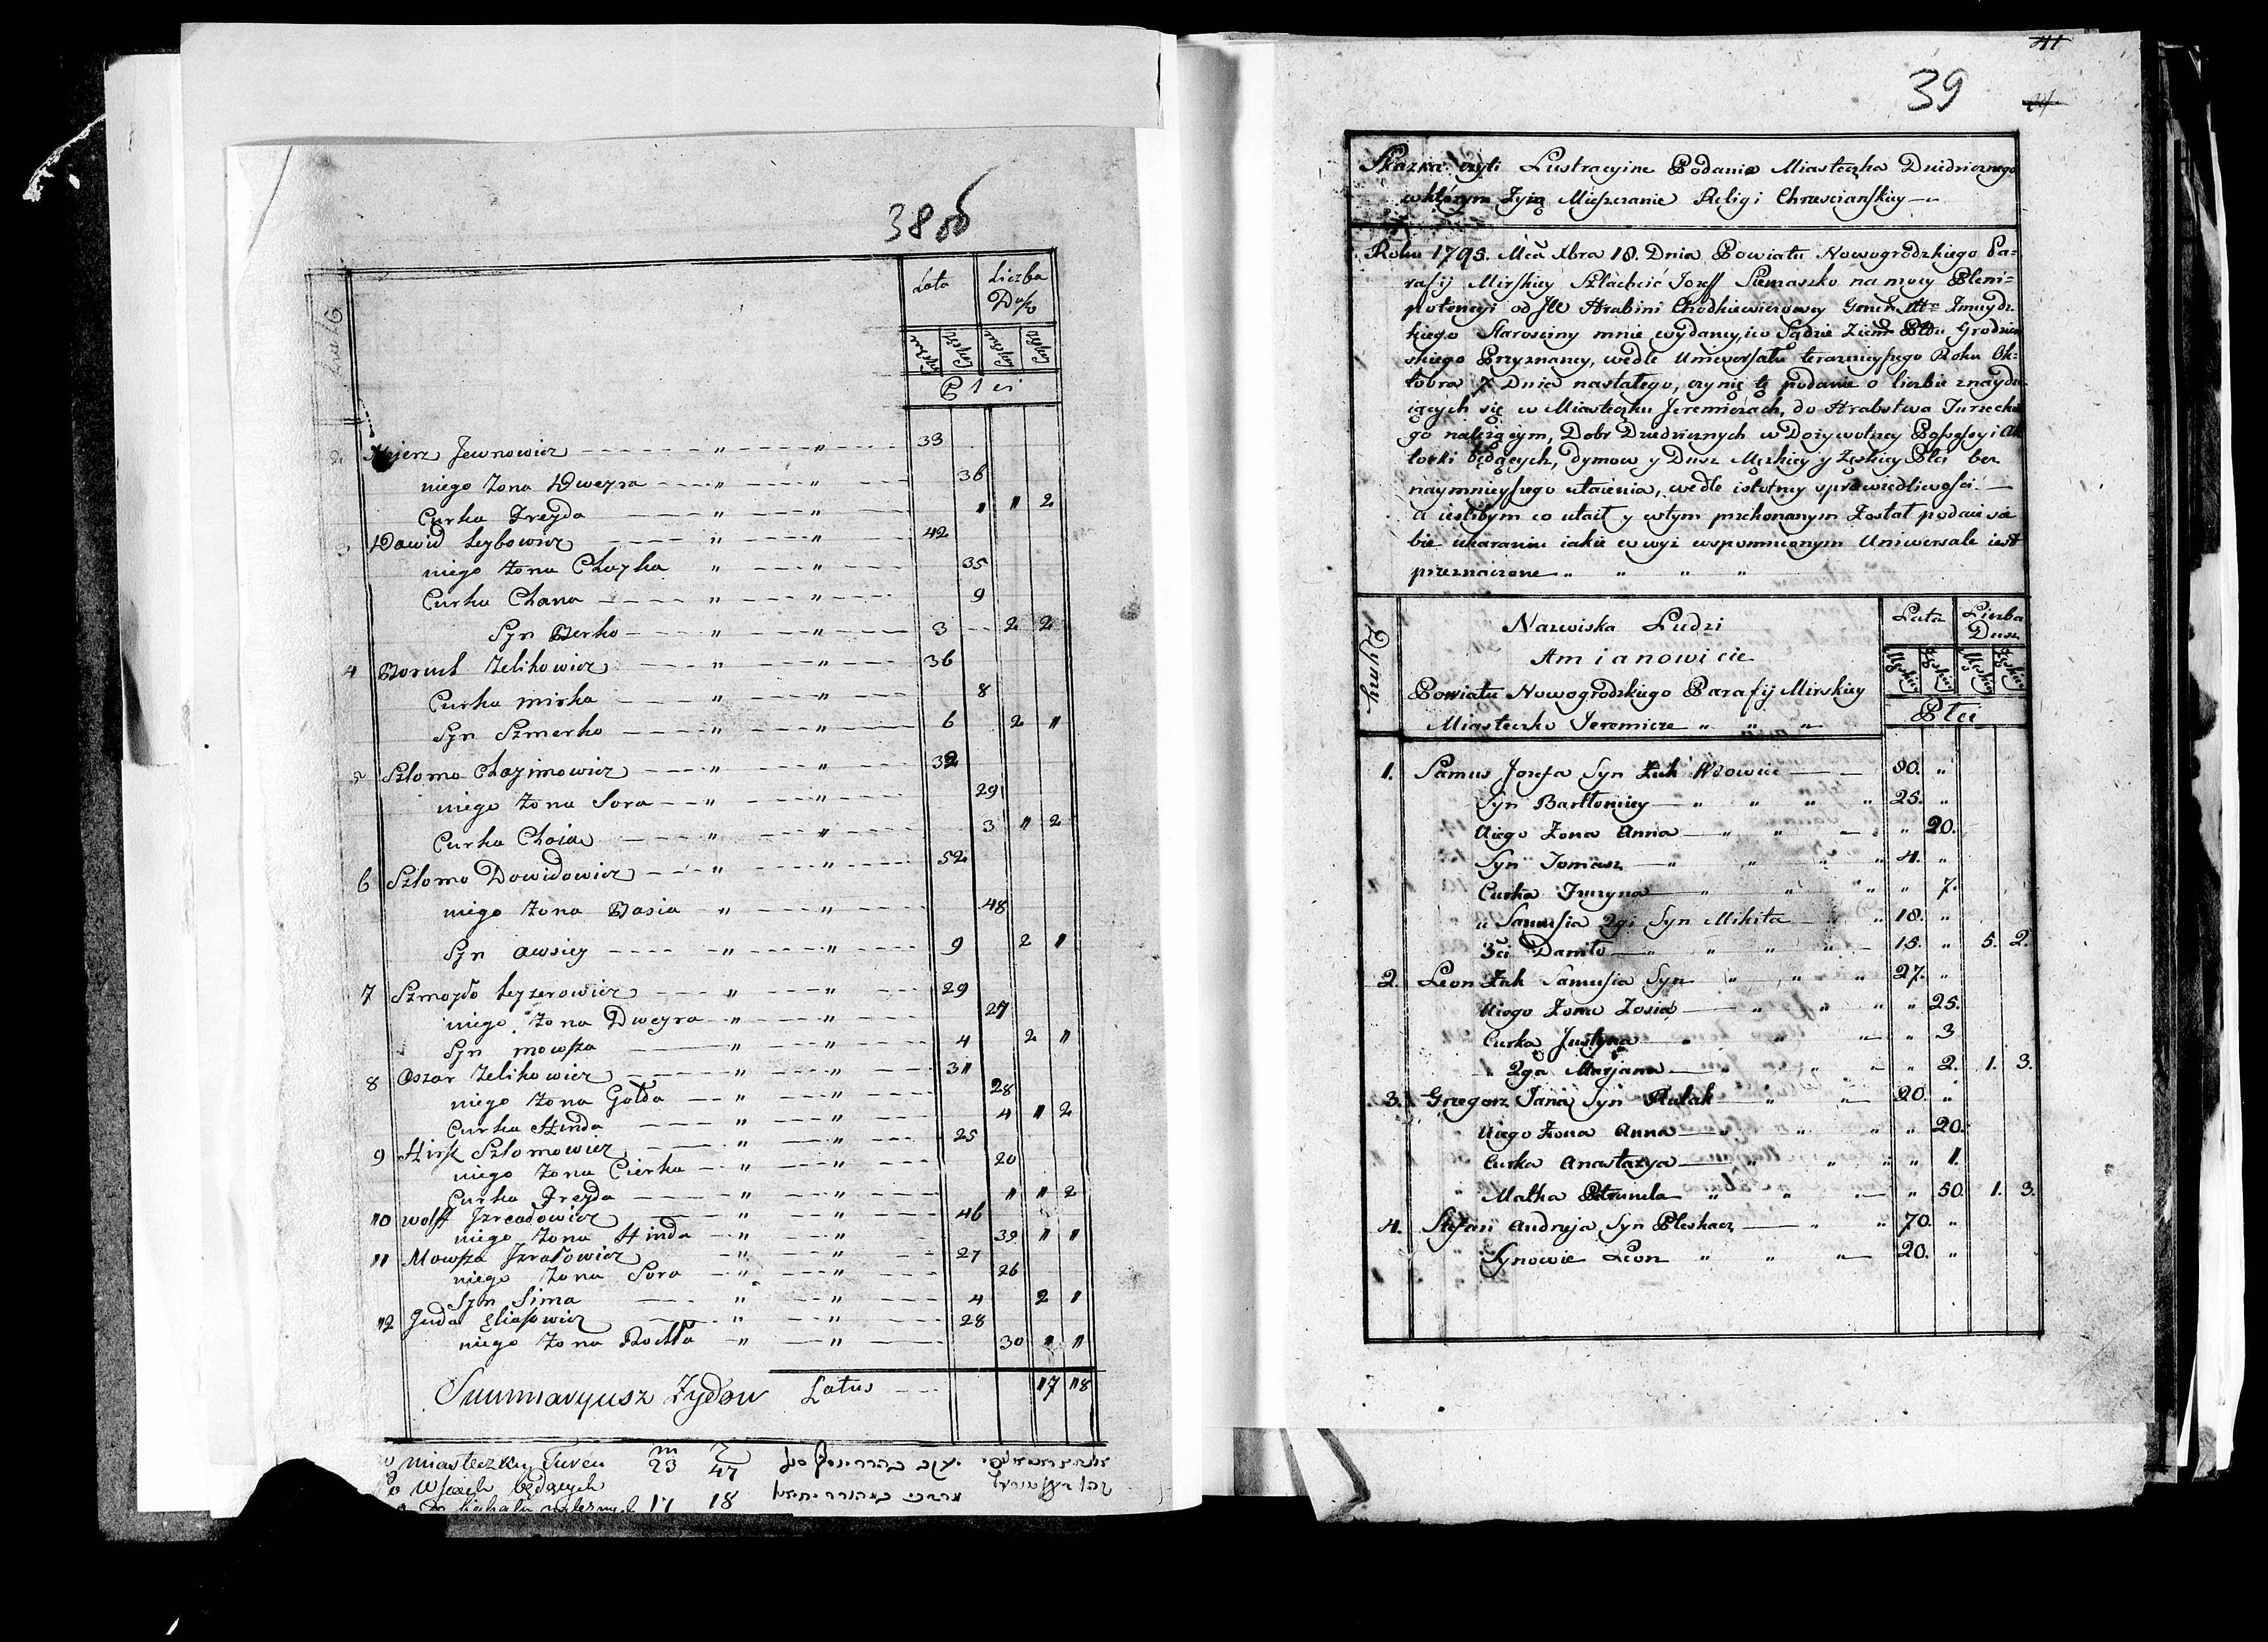 38 об
Lata Liczba Dusz
Męzkiey Żęskiey Męzkiey Żęskiey
Płci
Dymy
2 Mejerz Jewnowicz 33
niego Zona Dweyra 36
Curka Freyda " " 2
3 Dawid Leybowicz 42
niego Zona Chayka 35
Curka Chana 9
Syn Berko 3 2 2
4 Boruch Zelikowicz 36
Curka mirka 8
Syn Szmerko 6 2 "
5 Szlomo Chazimowicz 32
niego Zona Sora 29
Curka Chaia 3 " 2
6 Szlomo Dowidowicz 52
niego Zona Basia 48
Syn awsiey 9 2 "
7 Szmoyło Leyzerowicz 29
niego Zona Dweyra 27
Syn mowsza 4 2 "
8 Oszor Zelikowicz 3"
niego Zona Gołda 28
Curka Hinda 4 " 2
9 Hirsz Szlomowicz 25
niego Zona Cierka 20
Curka Freyda " " 2
"0 wolff Izraelowicz 46
niego Zona Hinda 39 " "
"" Mowsza Izrałowicz 27
niego Zona Sora 26
Syn Sima 4 2 "
"2 Juda Eliaszowicz 28
niego Zona Rochla 30 " "
Summaryusz Zydow Latus "7 "8
m z
w miasteczku Turcu 23 47
w Wsiach będących
do kahału należnych 17 18
41
39
Skazka czyli Lustracyine Podanie Miasteczka Dziedzicznego
w którym Żyią Mieszczanie Religi Chrzescianskiey
Roku 1795. Mca Xbra 18. Dnia Powiatu Nowogrodzkiego Pa=
rafij Mirskiey Szlachcić Jozeff Siemaszko na mocy Pleni=
potencyi od JW Hrabini Chodkiewiczowey Genek Xtw Zmuydz
kiego Starosciny mnie wydaney, i w Sądzie Ziem Pttu Grodzien
skiego Przyznaney, wedle Uniwersału teraznieyszego Roku Ok=
tobra 7 Dnia nastałego, czynię tę podanie o liczbie znaydu
iących się w Miasteczku Jeremiczach, do Hrabstwa Turzeckie
go należącym, Dobr Dziedzicznych w Dożywotney Possessyi Ak
torki będących, Dymow y Dusz Męzkiey y Żęskiey Płci bez
naymnieyszego utaienia, wedle istotney sprawiedliwości
a iesłibym co utaił y wtym przekonanym Został podaie sie
bie ukaraniu iakie w wyż wspomnionym Uniwersale iest
przeznaczone
Dymy
Nazwiska Ludzi
Amianowicie
Powiatu Nowogrodzkiego Parafij Mirskiey
Miasteczko Jeremicze
Lata Liczba Dusz
Męzkiey Żęskiey Męzkiey Żęskiey
Płci
1. Samus Jozefa Syn Żuk Wdowiec 80. "
Syn Bartłomiey 25. "
Niego Zona Anna " 20.
Syn Tomasz 4. "
Curka Fruzyna " 7.
u Samusia 2gi Syn Mikita 18. "
3ci Daniło 15. " 5. 2.
2. Leon Żuk Samusia Syn 27. "
Niego Zona Zosia " 25.
Curka Justyna " 3
2ga Maryana " 2. 1. 3.
3. Grzegorz Jana Syn Rulak 20. "
Niego Zona Anna " 20.
Curka Anastazya " 1.
Matka Petrunela " 50. 1. 3.
4. Stefan Andrzeja Syn Pleskacz 70. "
Synowie Leon 20. "